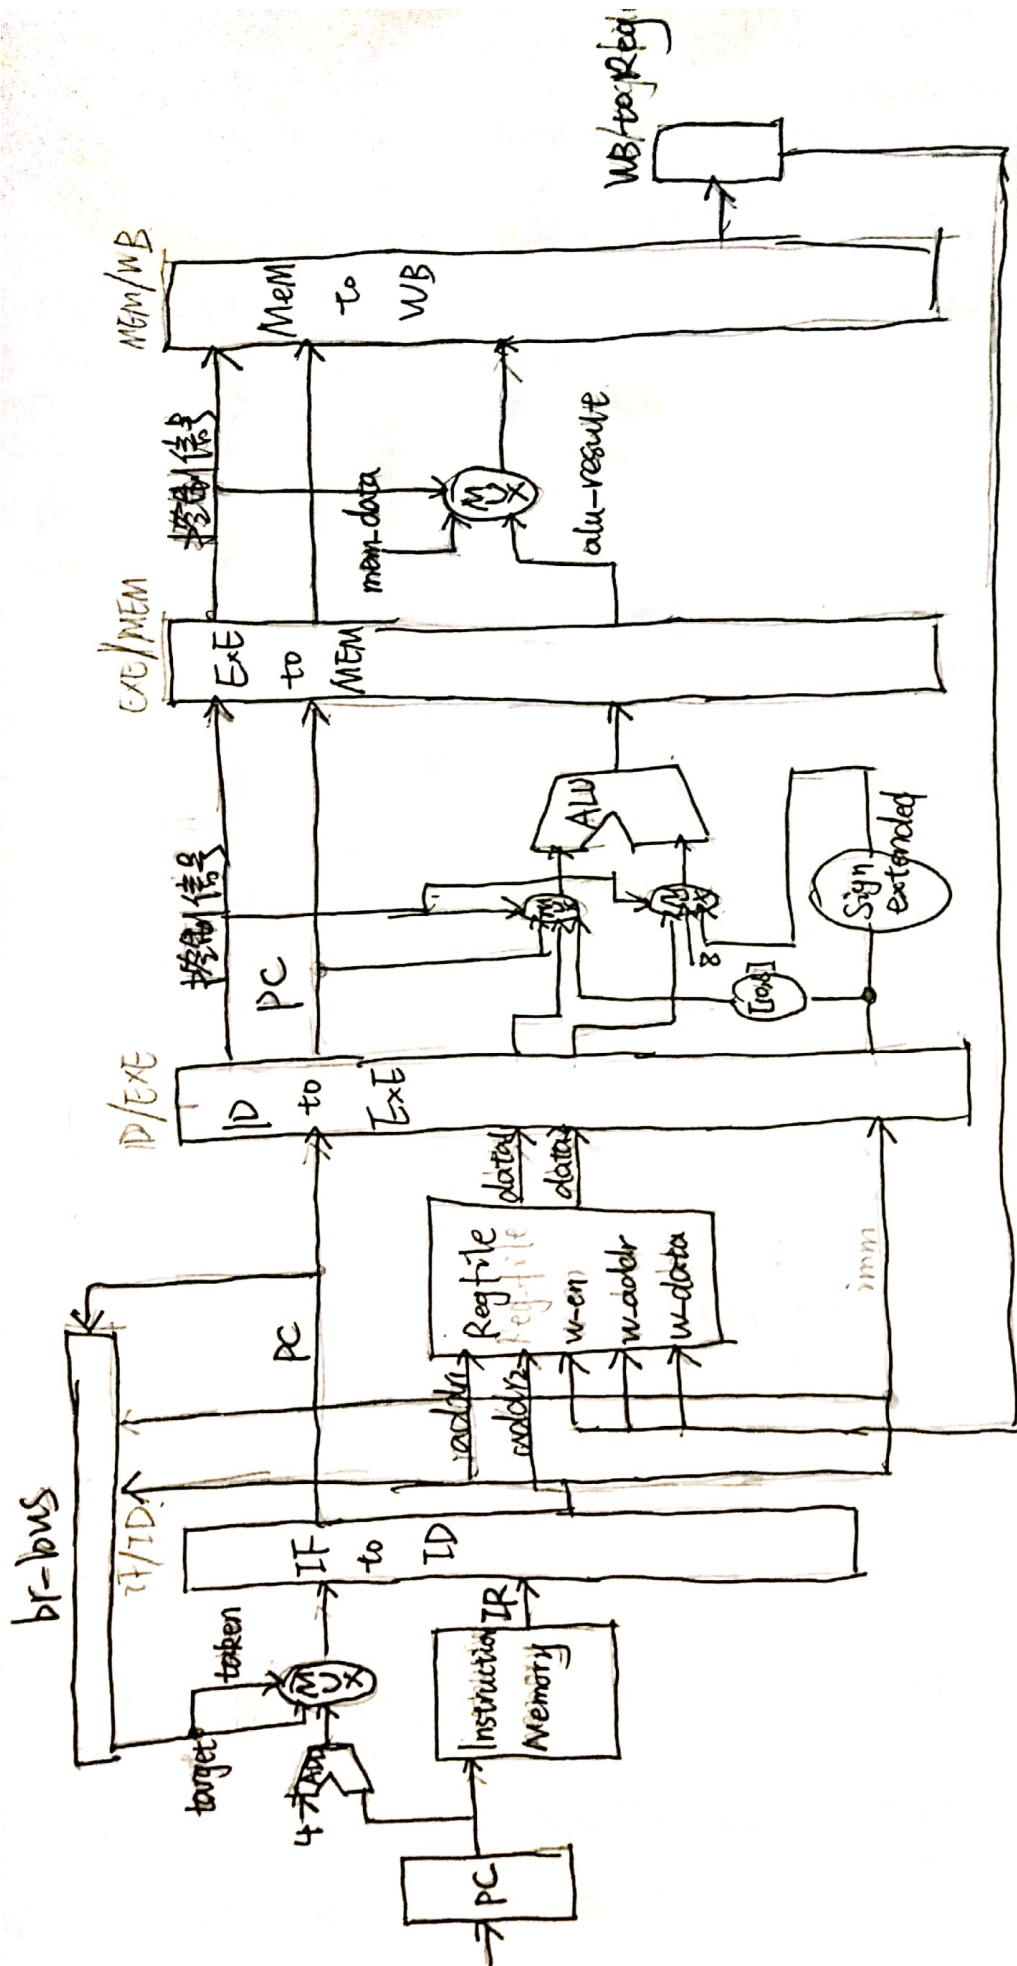 br-bus
target
taken
4
ADD
MUX
PC
Instruction
Memory
IR
IF/ID
IF
to
ID
PC
raddr1
raddr2
Regfile
Regfile
w-en
w-addr
w-data
data1
data
imm
ID/EXE
ID
to
ExE
控制信号
PC
MUX
MUX
8
ALU
Sign
extended
EXE/MEM
ExE
to
MEM
控制信号
mem-data
MUX
alu-result
MEM/WB
MeM
to
WB
WB/togReg